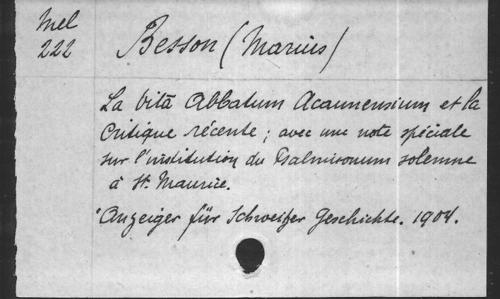 Mel
222
Besson (Marius)
La Vitā Abbatum Acaunensium et la
Critique récente; avec une note spéciale
sur l'institution du Psalmisonum solemne
à St. Maurice.
Anzeiger für Schweizer Geschichte. 1904.